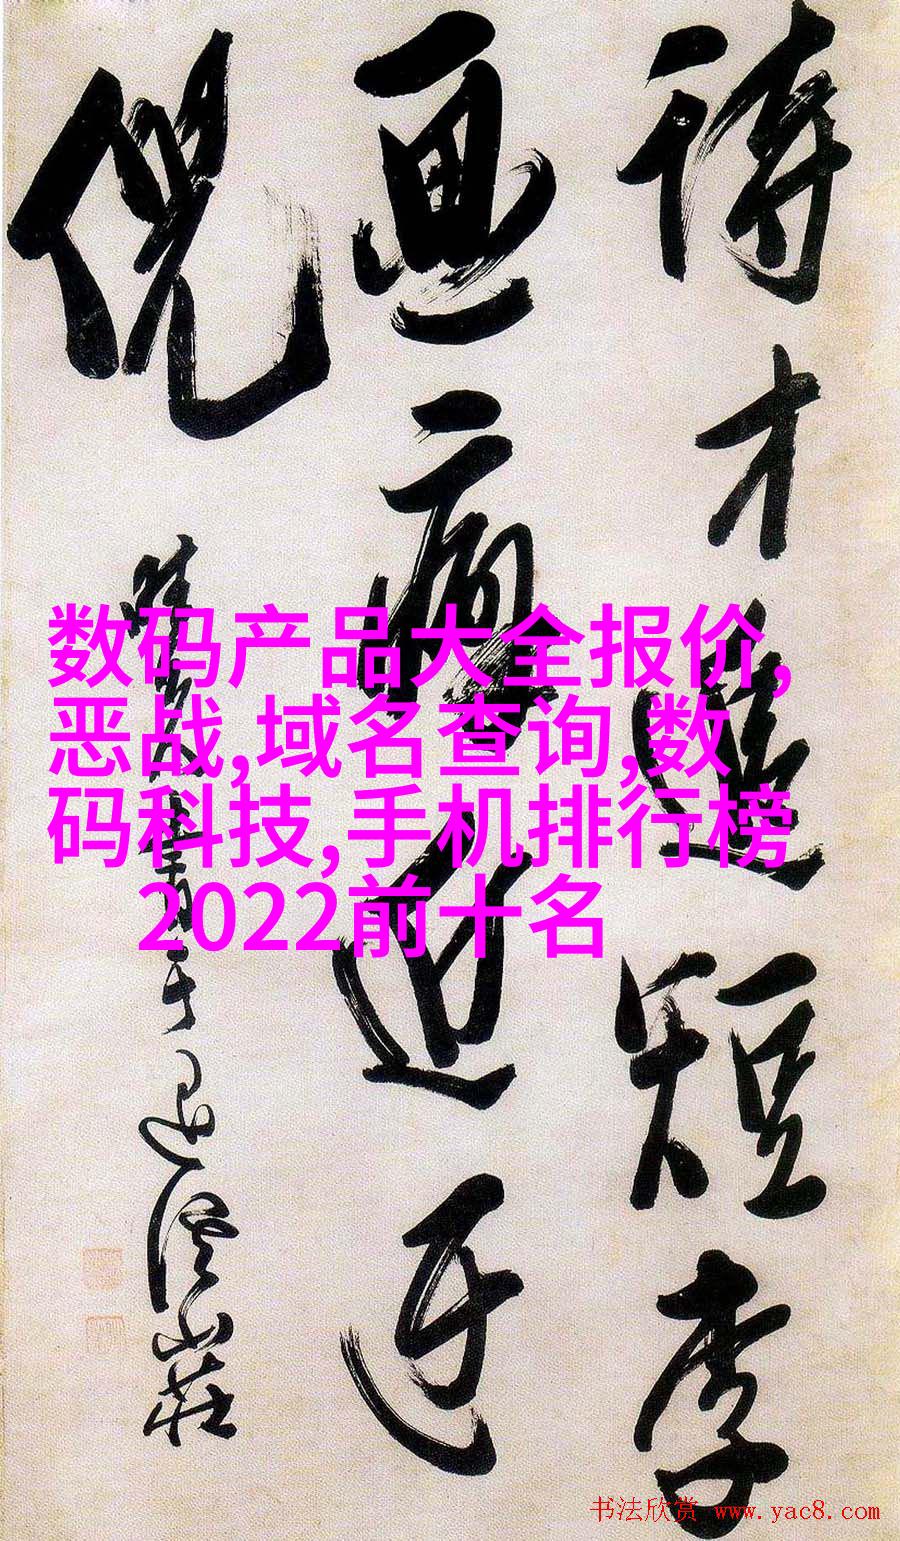 詩才進短李
画迫迂倪
書于溪山莊
数码产品大全报价,
恶战,域名查询,数
码科技,手机排行榜
2022前十名
书法欣赏 www.yac8.com